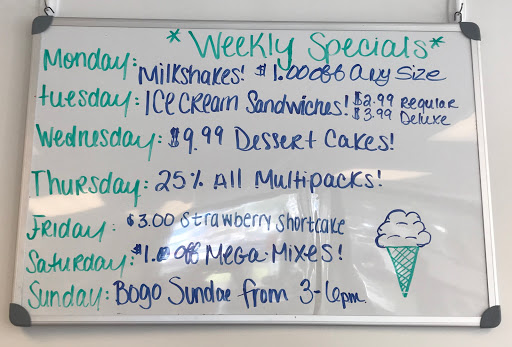 *Weekly Specials*
Monday: Milkshakes! $1.00 off Any Size
Tuesday: Ice Cream Sandwiches! $2.99 Regular
$3.99 Deluxe
Wednesday: $9.99 Dessert Cakes!
Thursday: 25% All Multipacks!
Friday: $3.00 Strawberry Shortcake
Saturday: $1.00 off Mega-Mixes!
Sunday: Bogo Sundae from 3-6pm.